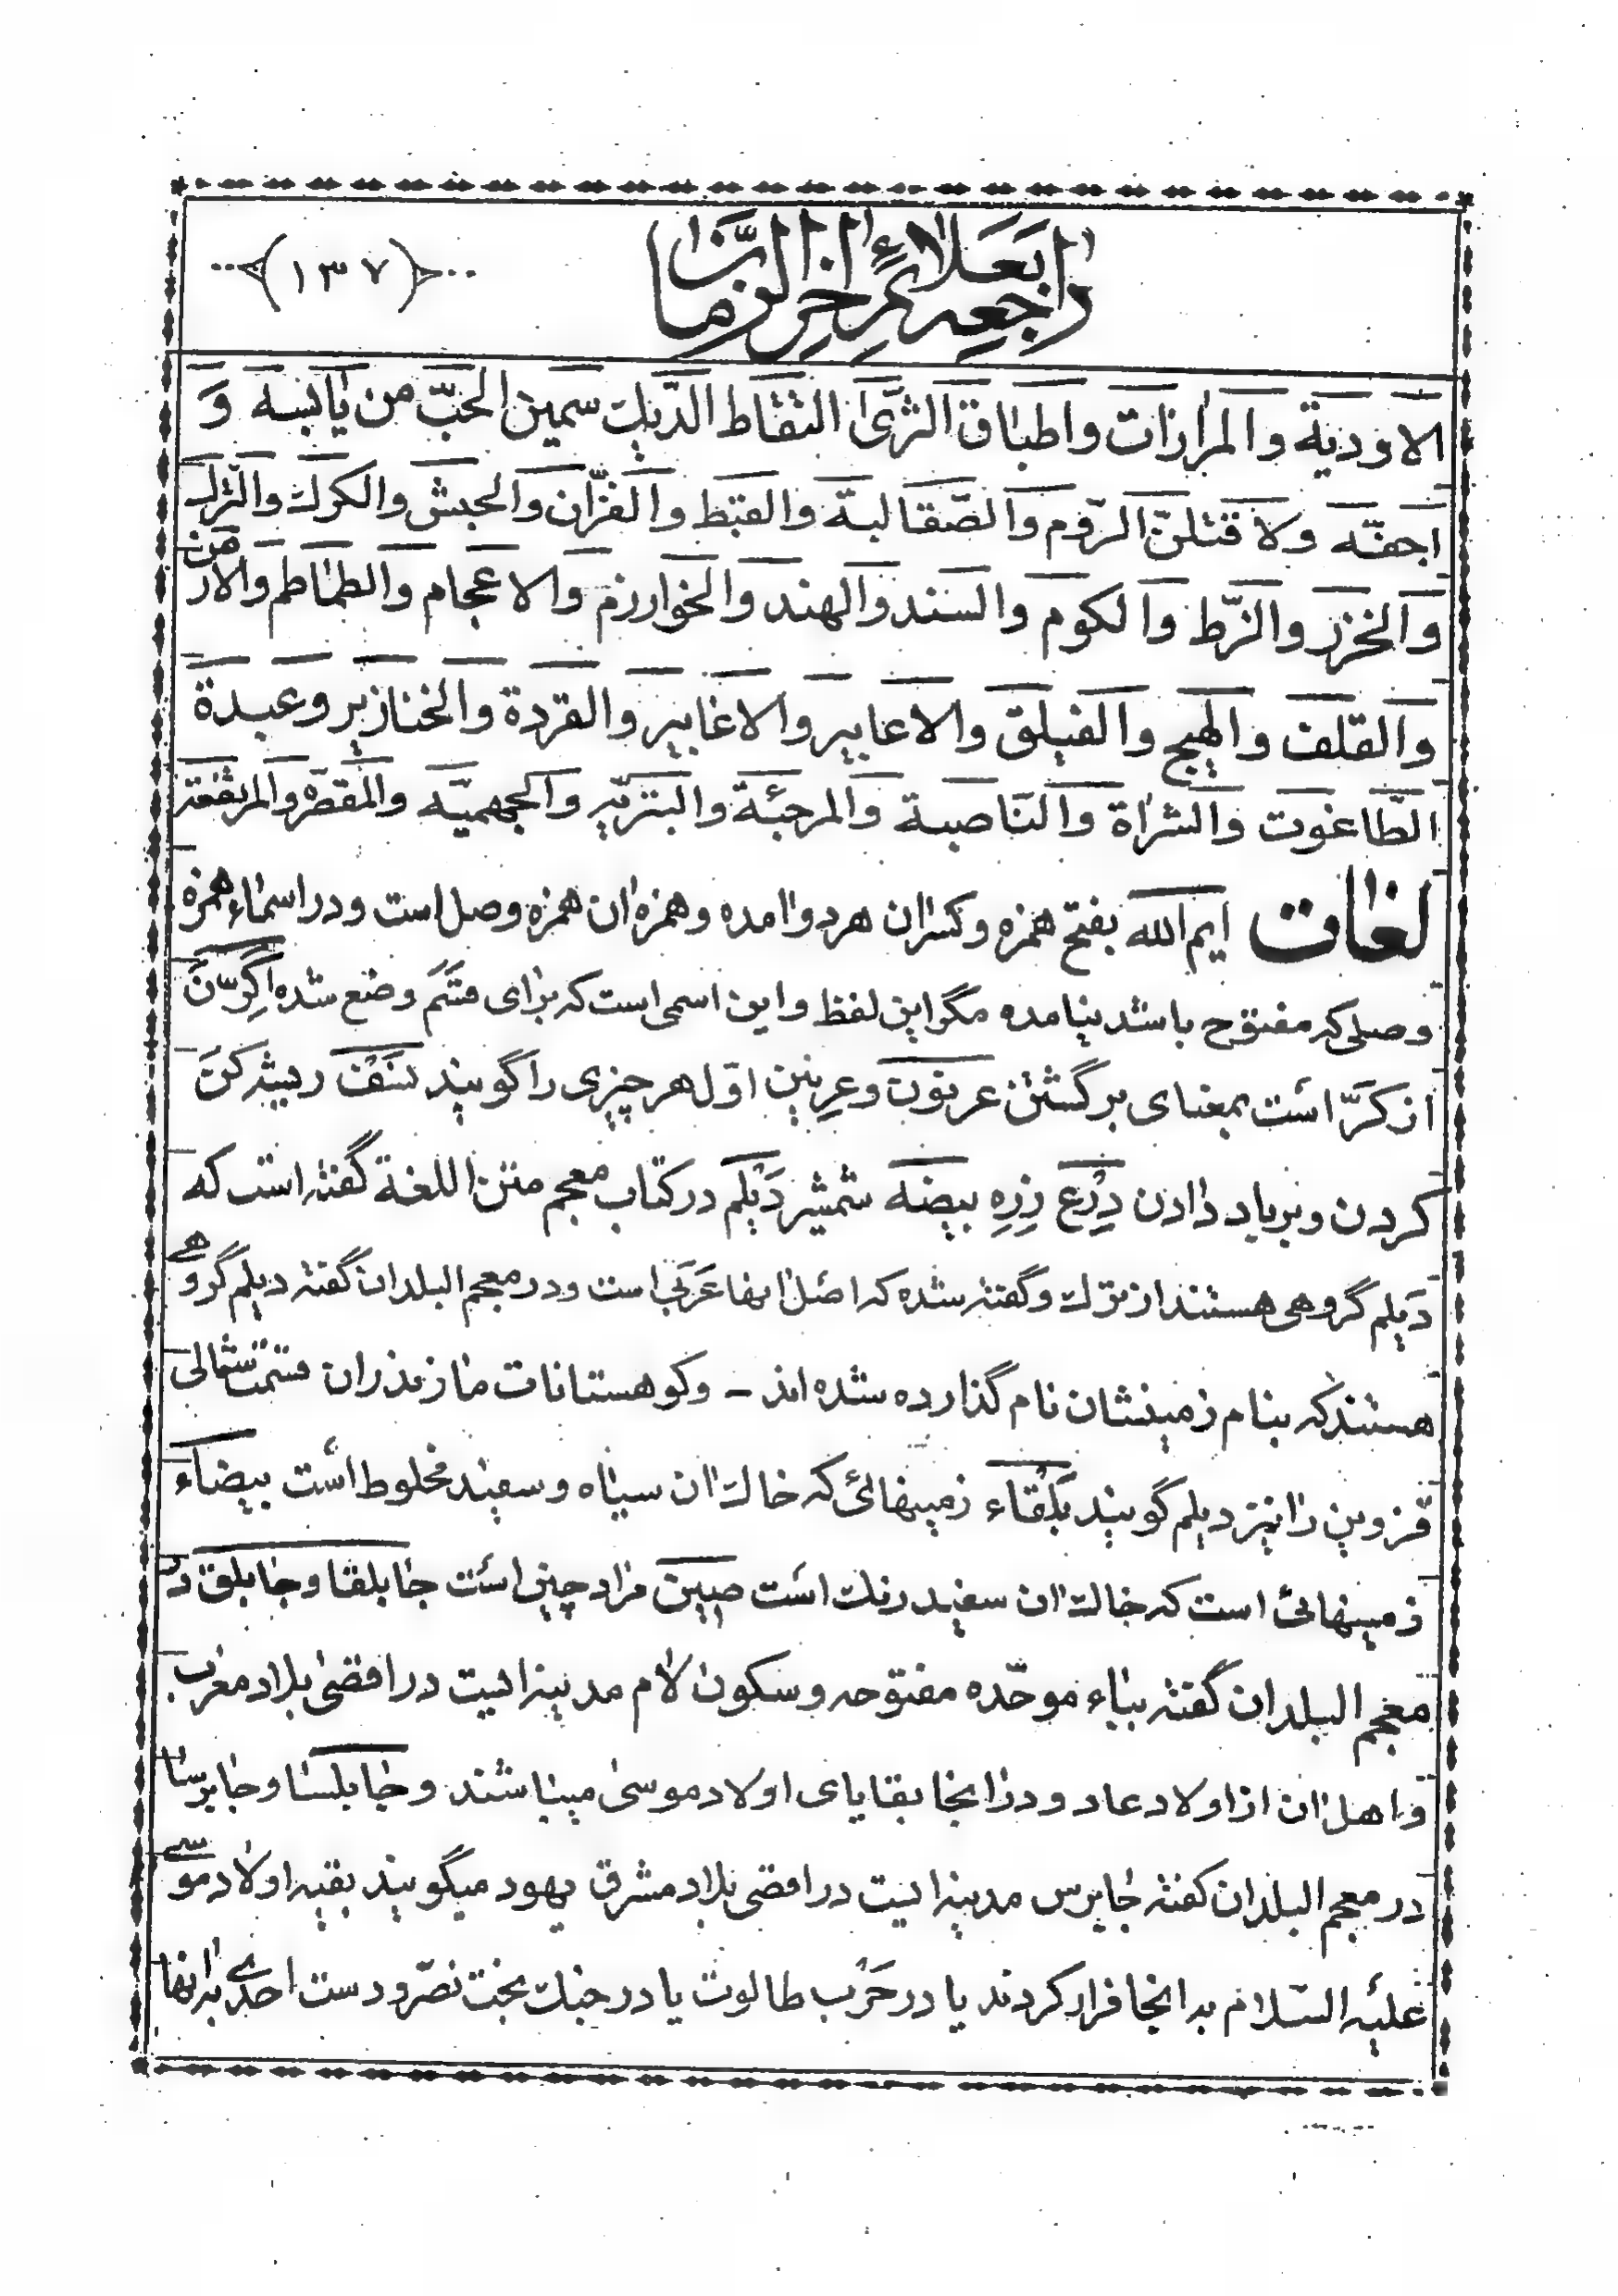 راجعه بعلائم اخر الزمان
(۱۳۷)
الاودية والمرازات واطباق الثرى التقاط الديك سمين الحب من يابسه و
اجفه ولاقتلن الروم والصقالبة والقبط والفزان والحبش والكرك والترك
والخزر والزط والكوم والسند والهند والخوارزم والاعجام والطماطم والارمن
والقلف والهيج والفيلق والاعابير والاغابير والقردة والخنازير وعبدة
الطاغوت والشراة والناصبة والمرجئة والبترية والجهمية والمقصره والمرتفعة
لغات ايم الله بفتح همزه وكسر ان هر دو امده وهمزه ان همزه وصل است ودر اسماء همزه
وصلی که مفتوح باشد نیامده مگر این لفظ واین اسمی است که برای قسم وضع شده اکرّن
از کَرّ است بمعنای برگشتن عرنون وعرنین اول هر چیزی را گویند نسف ریشه کن
کردن وبرباد دادن دِرْع زِرِه بیضه شمشیر دَیْلَم در کتاب معجم متن اللغة گفته است که
دَیلم گروهی هستند از ترک وگفته شده که اصل انها عَرَبی است ودر معجم البلدان گفته دیلم گروهے
هستند که بنام زمینشان نام گذارده شده اند - وکوهستانات مازندران قسمت شمالی
قزوین را نیز دیلم گویند بَلْقاء زمینهائی که خاک ان سیاه وسفید مخلوط است بیضاء
زمینهائی است که خاک ان سفید رنک است صین مراد چین است جابلقا وجابلق در
معجم البلدان گفته بباء موحّده مفتوحه وسکون لام مدینه ایست در اقصی بلاد مغرب
واهل ان از اولاد عاد ودر انجا بقایای اولاد موسی میباشند وجابلسا وجابرسا
در معجم البلدان گفته جابرس مدینه ایست در اقصی بلاد مشرق یهود میگویند بقیه اولاد موسے
علیه السلام بدانجا فرار کردند یا در حرب طالوت یا در جنک بخت نصّر ودست احدی بدانها